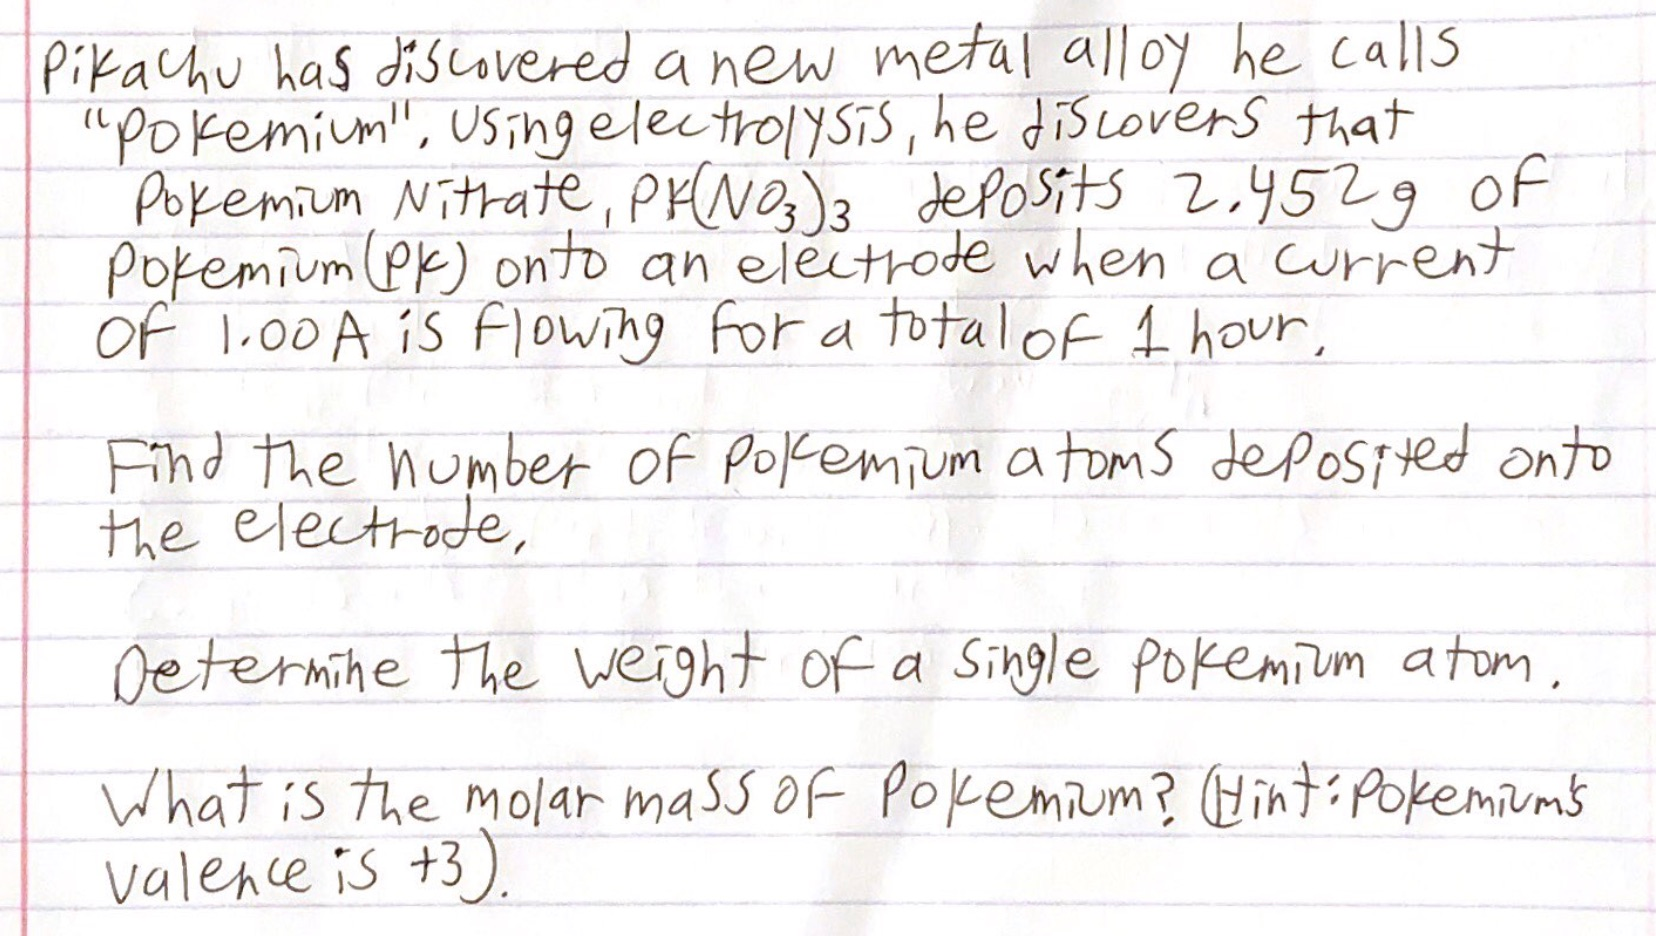 Pikachu has discovered a new metal alloy he calls
"Pokemium". Using electrolysis, he discovers that
Pokemium Nitrate, PK(NO3)3 deposits 2.452g of
Pokemium (PK) onto an electrode when a current
of 1.00A is flowing for a total of 1 hour.
Find the number of Pokemium atoms deposited onto
the electrode.
Determine the weight of a single Pokemium atom.
What is the molar mass of Pokemium? (Hint: Pokemium's
valence is +3).